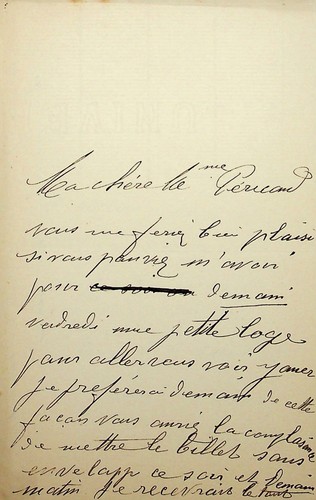 Ma chère Mme Péricaud
vous me feriez bien plaisi
si vous pouviez m'avoir
pour ce soir ou demain
vendredi une petite loge
pour aller vous voir jouer
je prefererai demain de cette
façon vous auriez la complaisance
de mettre le billet sous
envelopp ce soir et demain
matin je recevrais le tout